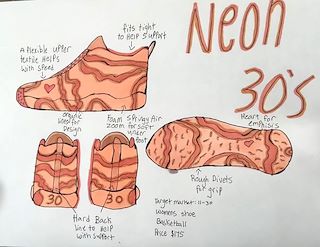 Neon
30's
fits tight
to Help Support
A flexible upper
textile Helps
with speed
organic
lines for
Design
Foam spkvay Air
zoom for soft
under
foot
Heart for
emphisis
30
30
Rough Divets
for grip
Hard Back
line to Help
with support
target market: 11-30
womens shoe
Basketball
Price $175